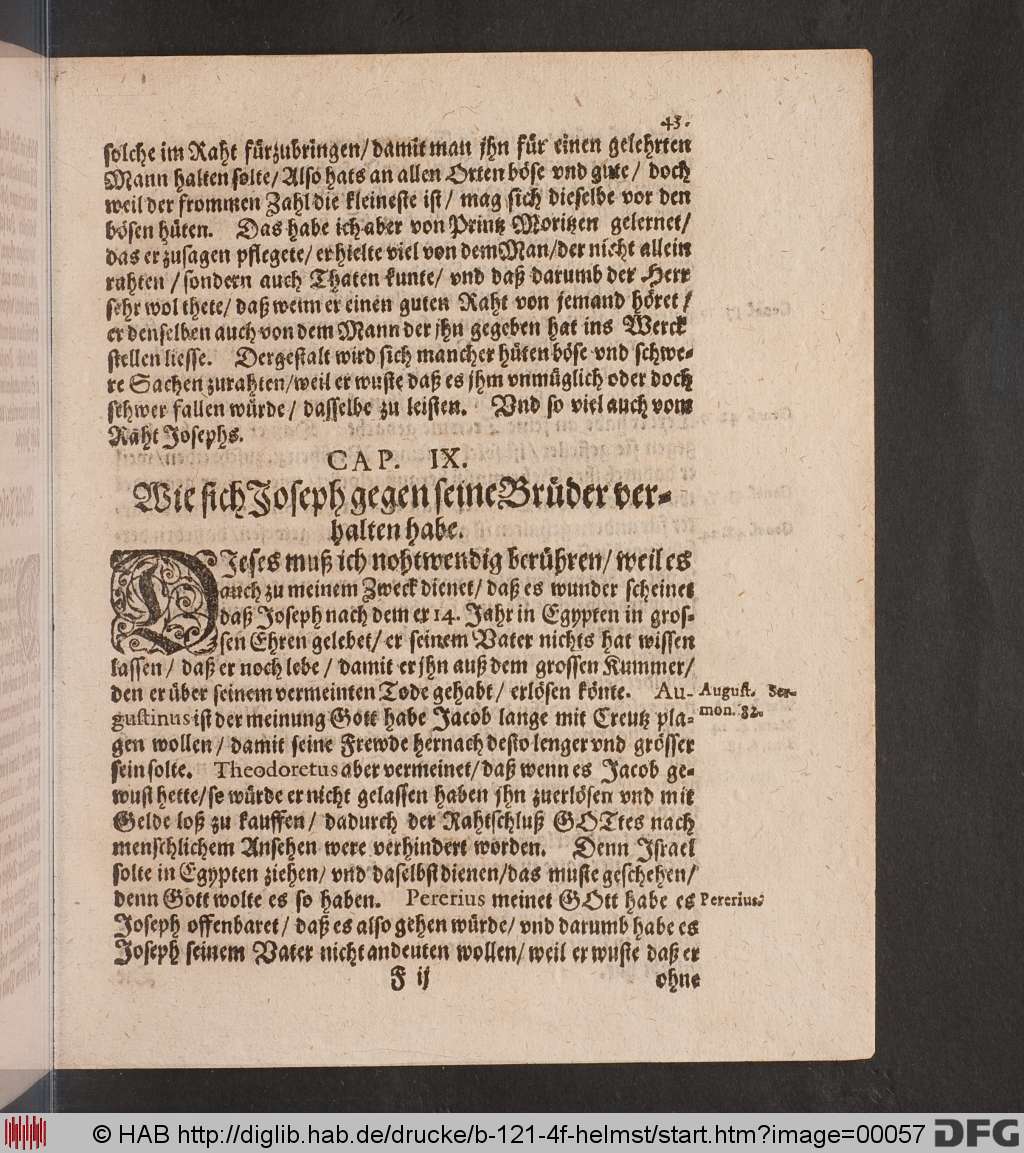 43.
solche im Raht fürzubringen/ damit man jhn für einen gelehrten
Mann halten solte/ Also hats an allen Orten böse vnd gute/ doch
weil der frommen Zahl die kleineste ist/ mag sich dieselbe vor den
bösen hüten. Das habe ich aber von Printz Moritzen gelernet/
das er zusagen pflegete/ er hielte viel von dem Man/ der nicht allein
rahten/ sondern auch Thaten kunte/ vnd daß darumb der Herr
sehr wol thete/ daß wenn er einen guten Raht von jemand höret/
er denselben auch von dem Mann der jhn gegeben hat ins Werck
stellen liesse. Dergestalt wird sich mancher hüten böse vnd schwe-
re Sachen zurahten/ weil er wuste daß es jhm vnmüglich oder doch
schwer fallen würde/ dasselbe zu leisten. Vnd so viel auch vom
Raht Josephs.
CAP. IX.
Wie sich Joseph gegen seine Brüder ver-
halten habe.
DJeses muß ich nohtwendig berühren/ weil es
auch zu meinem Zweck dienet/ daß es wunder scheinet
daß Joseph nach dem er 14. Jahr in Egypten in gros-
sen Ehren gelebet/ er seinem Vater nichts hat wissen
lassen/ daß er noch lebe/ damit er jhn auß dem grossen Kummer/
den er über seinem vermeinten Tode gehabt/ erlösen könte. Au-
August. Ser-
mon. 82.
gustinus ist der meinung Gott habe Jacob lange mit Creutz pla-
gen wollen/ damit seine Frewde hernach desto lenger vnd grösser
sein solte. Theodoretus aber vermeinet/ daß wenn es Jacob ge-
wust hette/ so würde er nicht gelassen haben jhn zuerlösen vnd mit
Gelde loß zu kauffen/ dadurch der Rahtschluß GOTtes nach
menschlichem Ansehen were verhindert worden. Denn Jsrael
solte in Egypten ziehen/ vnd daselbst dienen/ das muste geschehen/
denn Gott wolte es so haben. Pererius meinet GOtt habe es
Pererius.
Joseph offenbaret/ daß es also gehen würde/ vnd darumb habe es
Joseph seinem Vater nicht andeuten wollen/ weil er wuste daß er
F ij
ohne
© HAB http://diglib.hab.de/drucke/b-121-4f-helmst/start.htm?image=00057
DFG